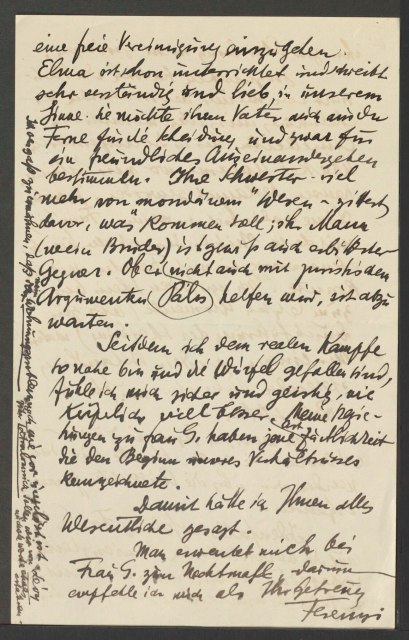 eine freie Vereinigung einzugehen.
Elma ist schon unterrichtet und schreibt
sehr verständig und lieb in unserem
Sinne. Sie möchte ihren Vater auch aus der
Ferne für die Scheidung und zwar für
ein freundliches Auseinandergehen
bestimmen. Ihre Schwester – viel
mehr von mondänem Wesen – zittert
davor, was kommen soll; ihr Mann
(mein Bruder) ist gewiss auch erbitterter
Gegner. Ob er nicht auch mit juristischen
Argumenten Palos helfen wird, ist abzu-
warten.
Seitdem ich dem realen Kampfe
so nahe bin und die Würfel gefallen sind,
fühle ich mich sicher und geistig, wie
körperlich viel besser. Meine Bezie-
hungen zu Frau G. haben jene Zärtlichkeit
die den Beginn unseres Verhältnisses
kennzeichnete.
Damit hätte ich Ihnen alles
Wesentliche gesagt.
Man erwartet mich bei
Frau G. zum Nachtmahle, darum
empfehle ich mich als Ihr getreuer
Ferenczi
Ich vergass zu erwähnen, daß das Wohnungsproblem noch gar nicht gelöst ist.